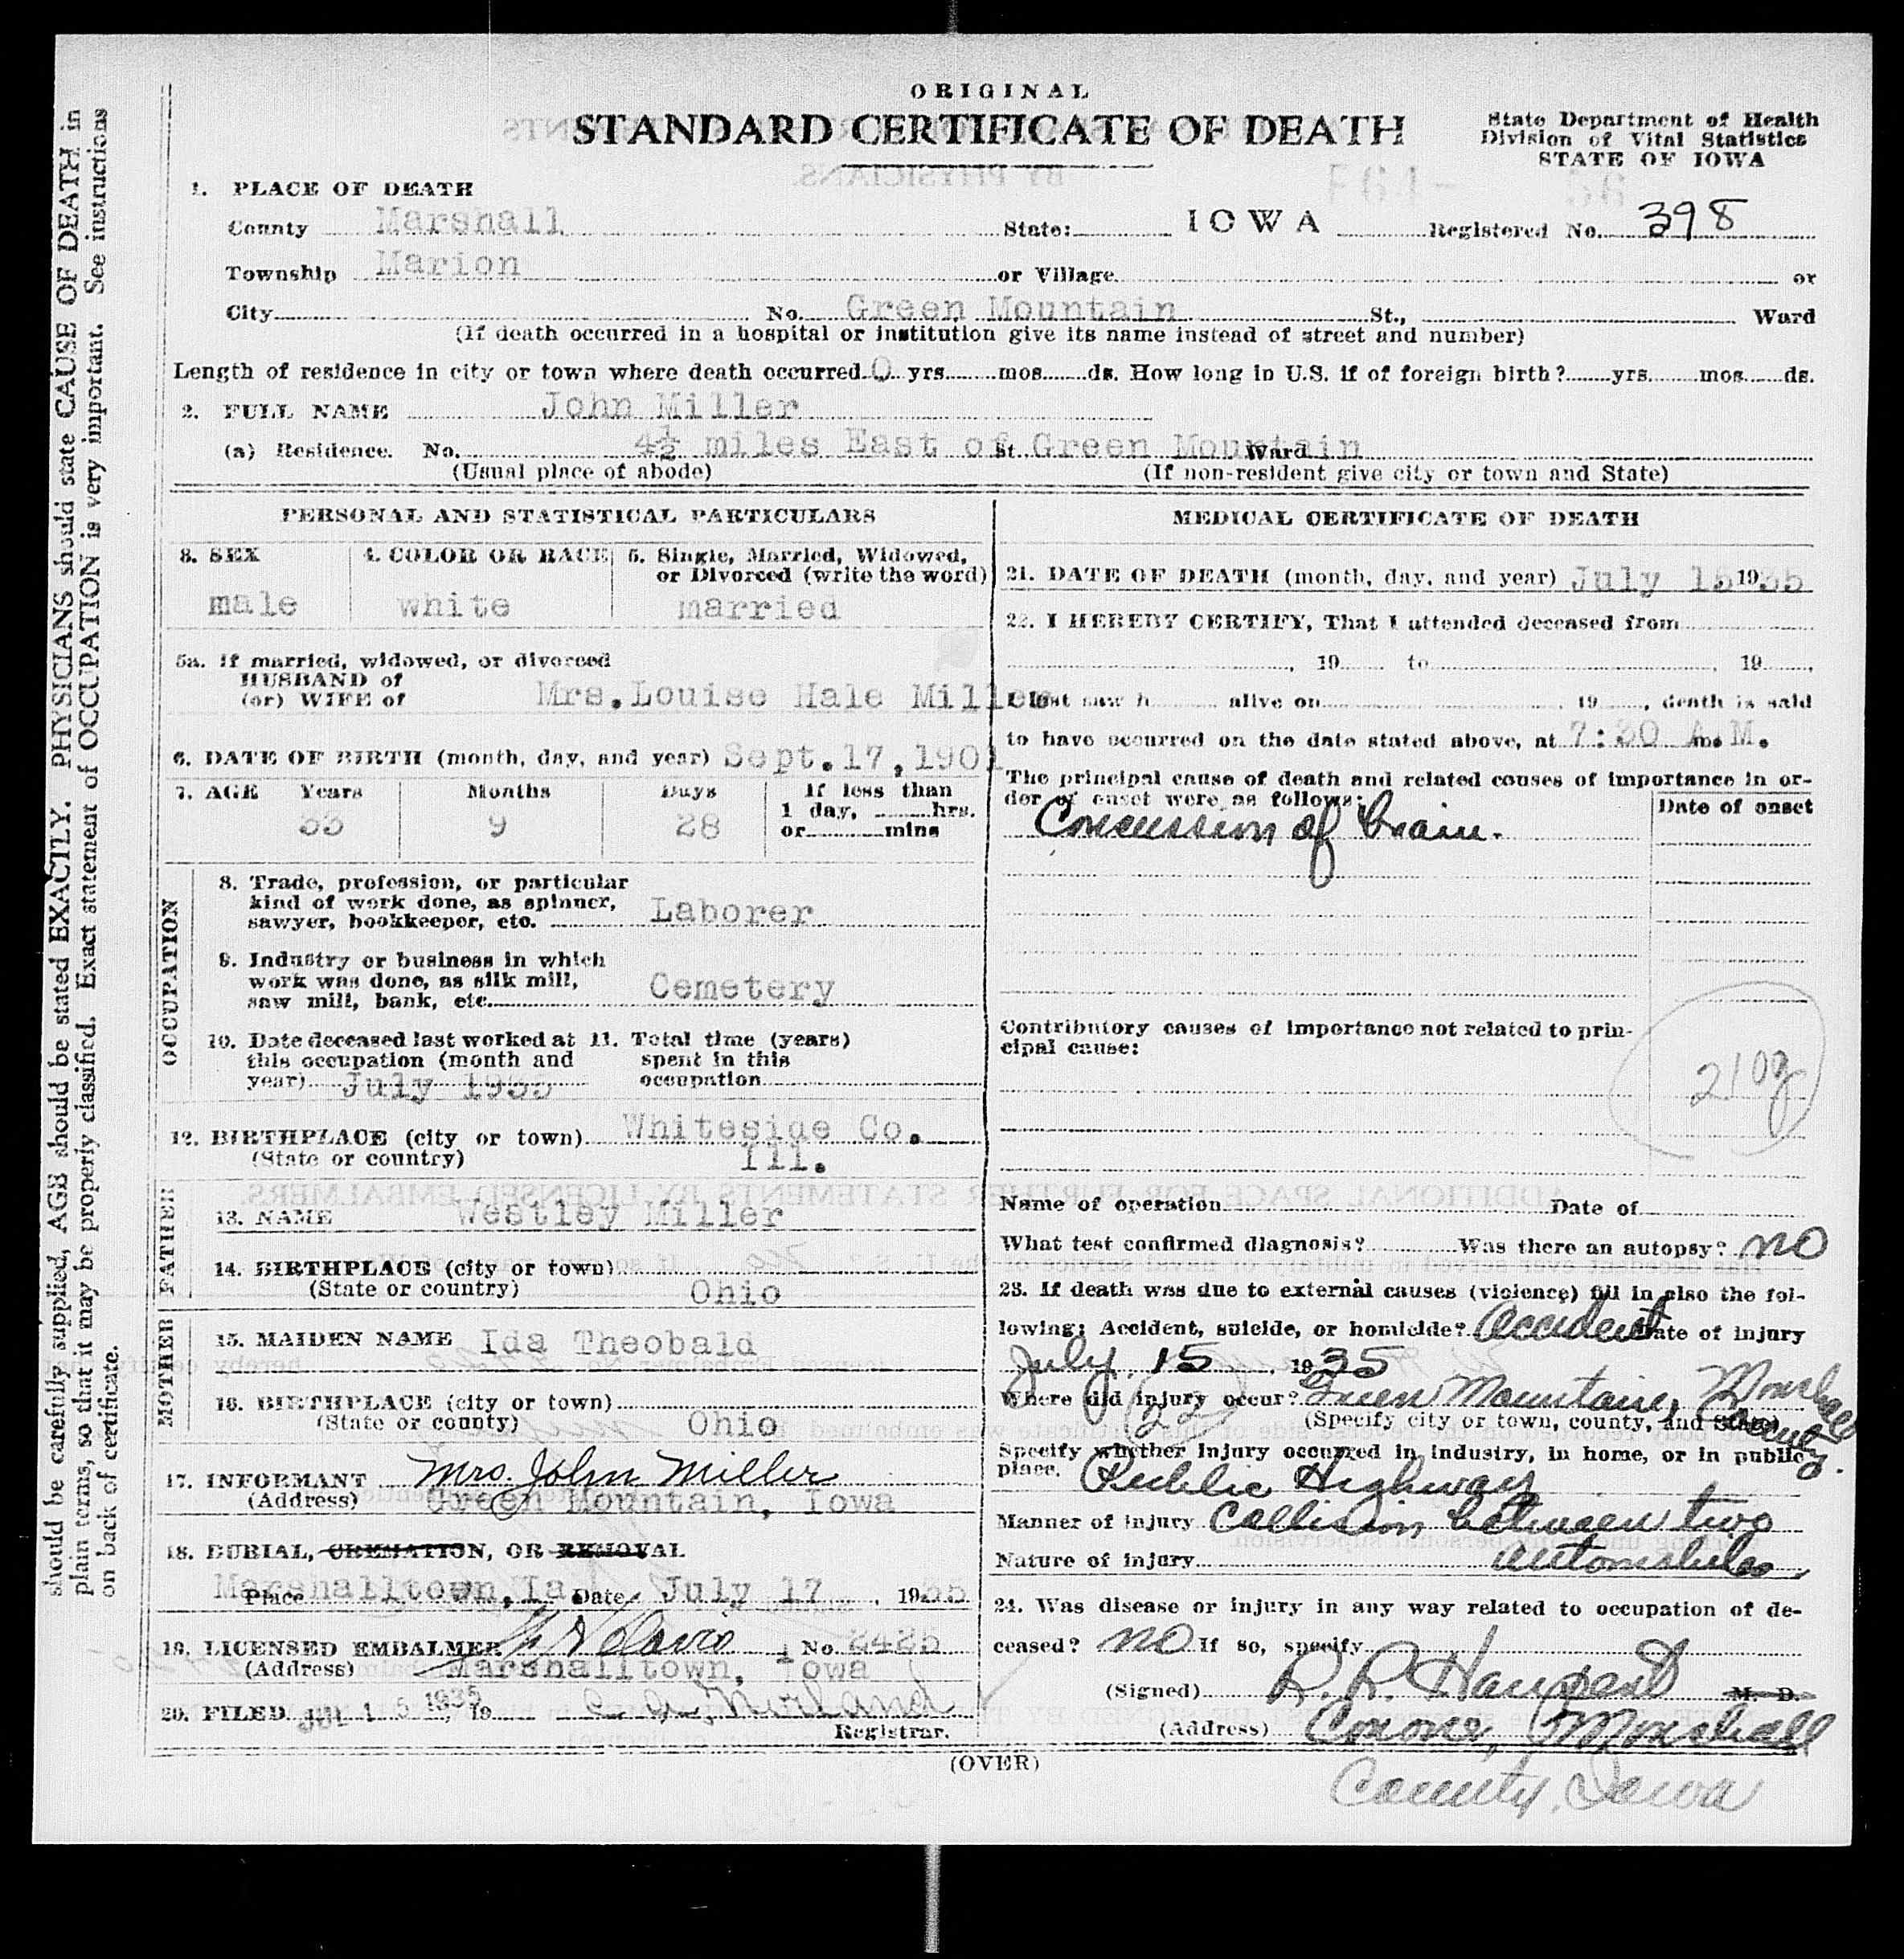 ORIGINAL
STANDARD CERTIFICATE OF DEATH
State Department of Health
Division of Vital Statistics
STATE OF IOWA
1. PLACE OF DEATH
County Marshall State: IOWA Registered No. 398
Township Marion or Village or
City No. Green Mountain St., Ward
(If death occurred in a hospital or institution give its name instead of street and number)
Length of residence in city or town where death occurred 0 yrs. mos. ds. How long in U.S. if of foreign birth? yrs. mos. ds.
2. FULL NAME John Miller
(a) Residence. No. 4½ miles East of Green Mountain St. Ward
(Usual place of abode) (If non-resident give city or town and State)
PERSONAL AND STATISTICAL PARTICULARS
3. SEX 4. COLOR OR RACE 5. Single, Married, Widowed,
or Divorced (write the word)
male white married
5a. If married, widowed, or divorced
HUSBAND of
(or) WIFE of Mrs.Louise Hale Miller
6. DATE OF BIRTH (month, day, and year) Sept.17,1901
7. AGE Years Months Days If less than
1 day, hrs.
33 9 28 or mins
OCCUPATION
8. Trade, profession, or particular
kind of work done, as spinner,
sawyer, bookkeeper, etc. Laborer
9. Industry or business in which
work was done, as silk mill,
saw mill, bank, etc. Cemetery
10. Date deceased last worked at 11. Total time (years)
this occupation (month and spent in this
year) July 1935 occupation
12. BIRTHPLACE (city or town) Whiteside Co.
(State or country) Ill.
FATHER
13. NAME Westley Miller
14. BIRTHPLACE (city or town)
(State or country) Ohio
MOTHER
15. MAIDEN NAME Ida Theobald
16. BIRTHPLACE (city or town)
(State or county) Ohio
17. INFORMANT Mrs. John Miller
(Address) Green Mountain, Iowa
18. BURIAL, CREMATION, OR REMOVAL
Place Marshalltown,Ia. Date July 17, 1935
19. LICENSED EMBALMER No. 2425
(Address) Marshalltown, Iowa
20. FILED JUL 15 1935, 19
Registrar.
MEDICAL CERTIFICATE OF DEATH
21. DATE OF DEATH (month, day, and year) July 15, 1935
22. I HEREBY CERTIFY, That I attended deceased from
, 19 to , 19 ,
I last saw h alive on 19 , death is said
to have occurred on the date stated above, at 7:30 A.M. m.
The principal cause of death and related causes of importance in or-
der of onset were as follows:
Date of onset
Concussion of brain.
Contributory causes of importance not related to prin-
cipal cause:
210g
Name of operation Date of
What test confirmed diagnosis? Was there an autopsy? no
23. If death was due to external causes (violence) fill in also the fol-
lowing: Accident, suicide, or homicide? Accident Date of injury
July 15, 1935
Where did injury occur? Green Mountain, Marshall County.
(Specify city or town, county, and State)
Specify whether injury occurred in industry, in home, or in public
place. Public Highway
Manner of injury Collision between two
Nature of injury automobiles
24. Was disease or injury in any way related to occupation of de-
ceased? no If so, specify
(Signed) M. D.
(Address) Coroner, Marshall
County, Iowa
(OVER)
should be carefully supplied, AGE should be stated EXACTLY. PHYSICIANS should state CAUSE OF DEATH in
plain terms, so that it may be properly classified. Exact statement of OCCUPATION is very important. See instructions
on back of certificate.